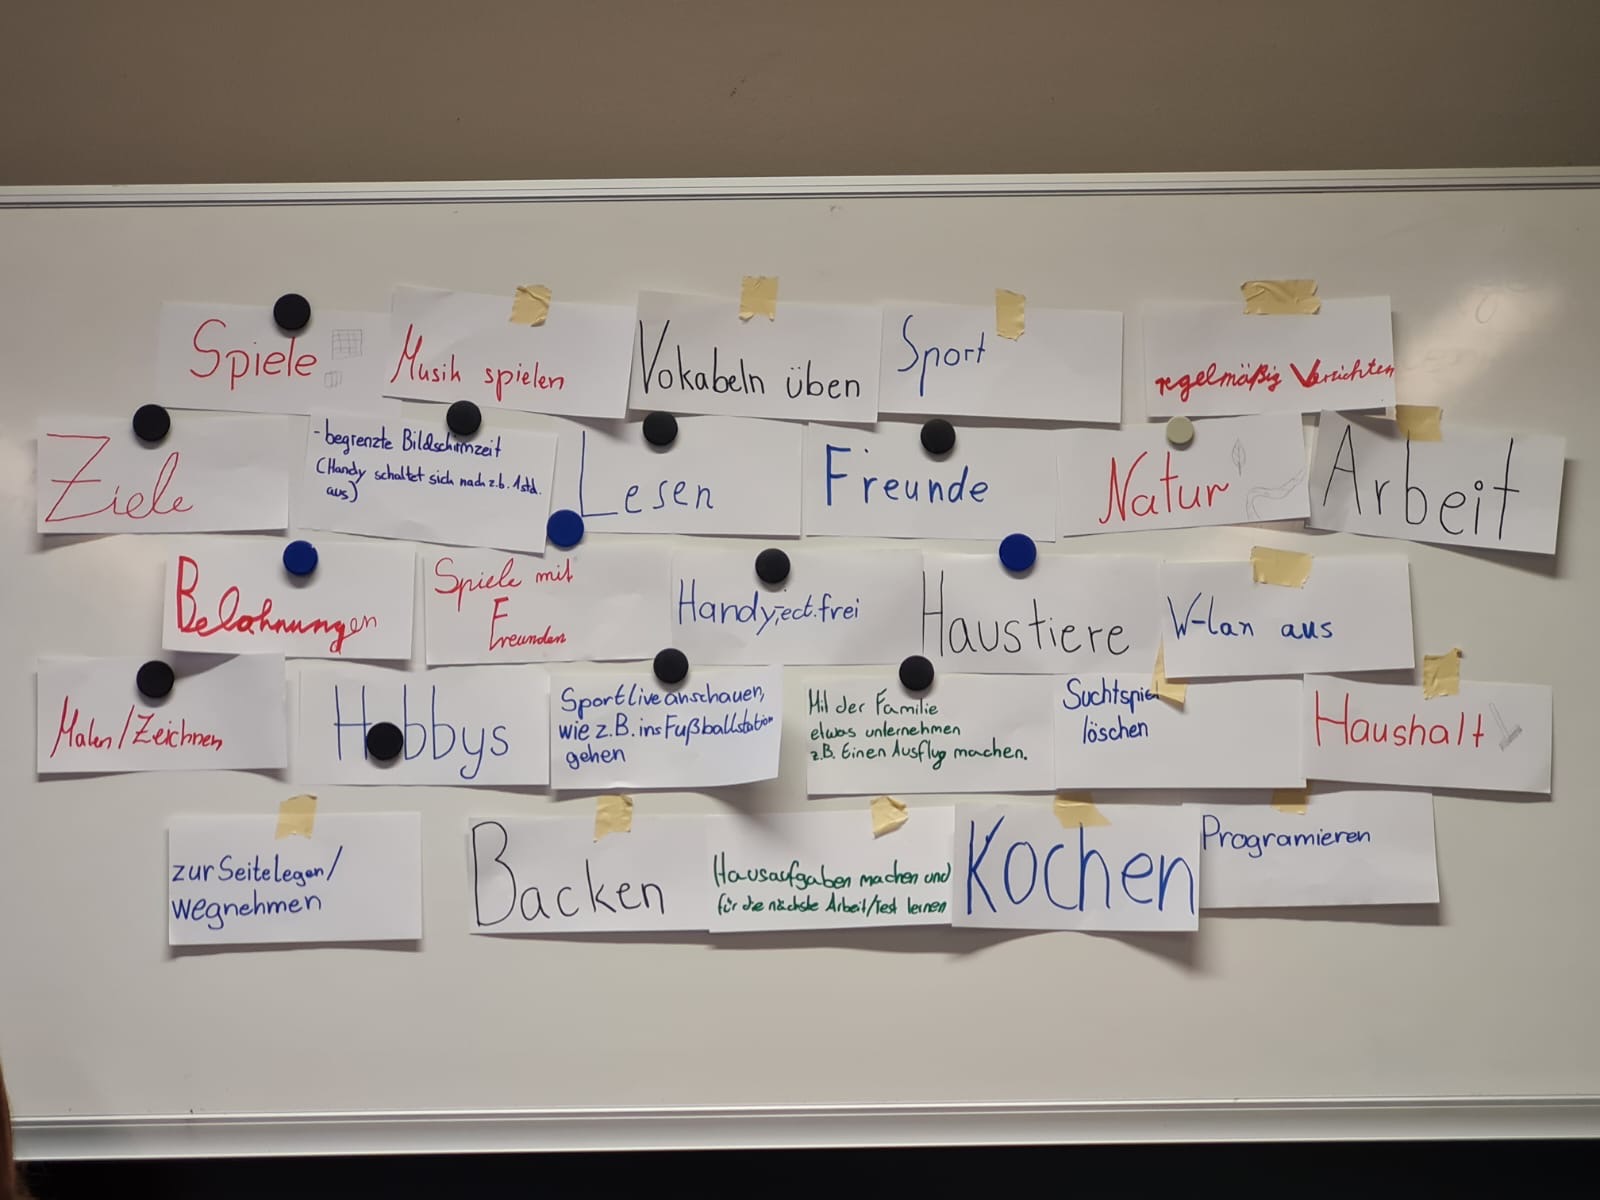 Spiele
Musik spielen
Vokabeln üben
Sport
regelmäßig Verzichten
Ziele
- begrenzte Bildschirmzeit
(Handy schaltet sich nach z.b. 1std.
aus)
Lesen
Freunde
Natur
Arbeit
Belohnungen
Spiele mit
Freunden
Handy,ect.frei
Haustiere
W-lan aus
Malen/Zeichnen
Hobbys
Sport live anschauen,
wie z.B. ins Fußballstation
gehen
Mit der Familie
etwas unternehmen
z.B. Einen Ausflug machen.
Suchtspiel
löschen
Haushalt
zur Seite legen/
wegnehmen
Backen
Hausaufgaben machen und
für die nächste Arbeit/Test lernen
Kochen
Programieren